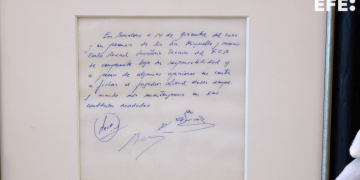 EFE:
En Barcelona, a 14 de diciembre del 2000
y en presencia de los Srs Minguella y Horacio
Carlos Rexach Secretario Técnico del F.C.B
se compromete bajo su responsabilidad y
a pesar de algunas opiniones en contra
a fichar al jugador Lionel Messi siempre
y cuando nos mantengamos en las
cantidades acordadas